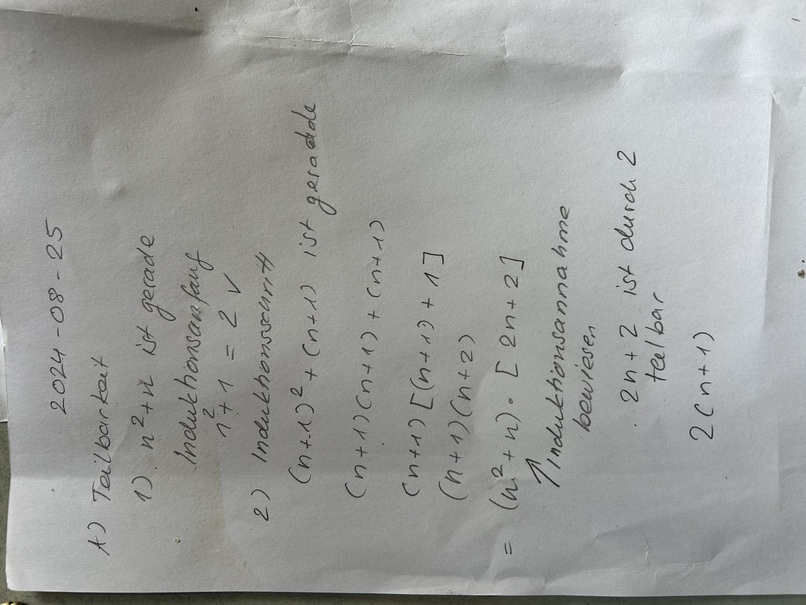 2024-08-25
A) Teilbarkeit
1) n²+n ist gerade
Induktionsanfang
1²+1 = 2 √
2) Induktionsschritt
(n+1)² + (n+1) ist geradde
(n+1)(n+1) + (n+1)
(n+1)[(n+1)+1]
(n+1)(n+2)
= (n²+n)·[2n+2]
↑Induktionsannahme
bewiesen
2n+2 ist durch 2
teilbar
2(n+1)